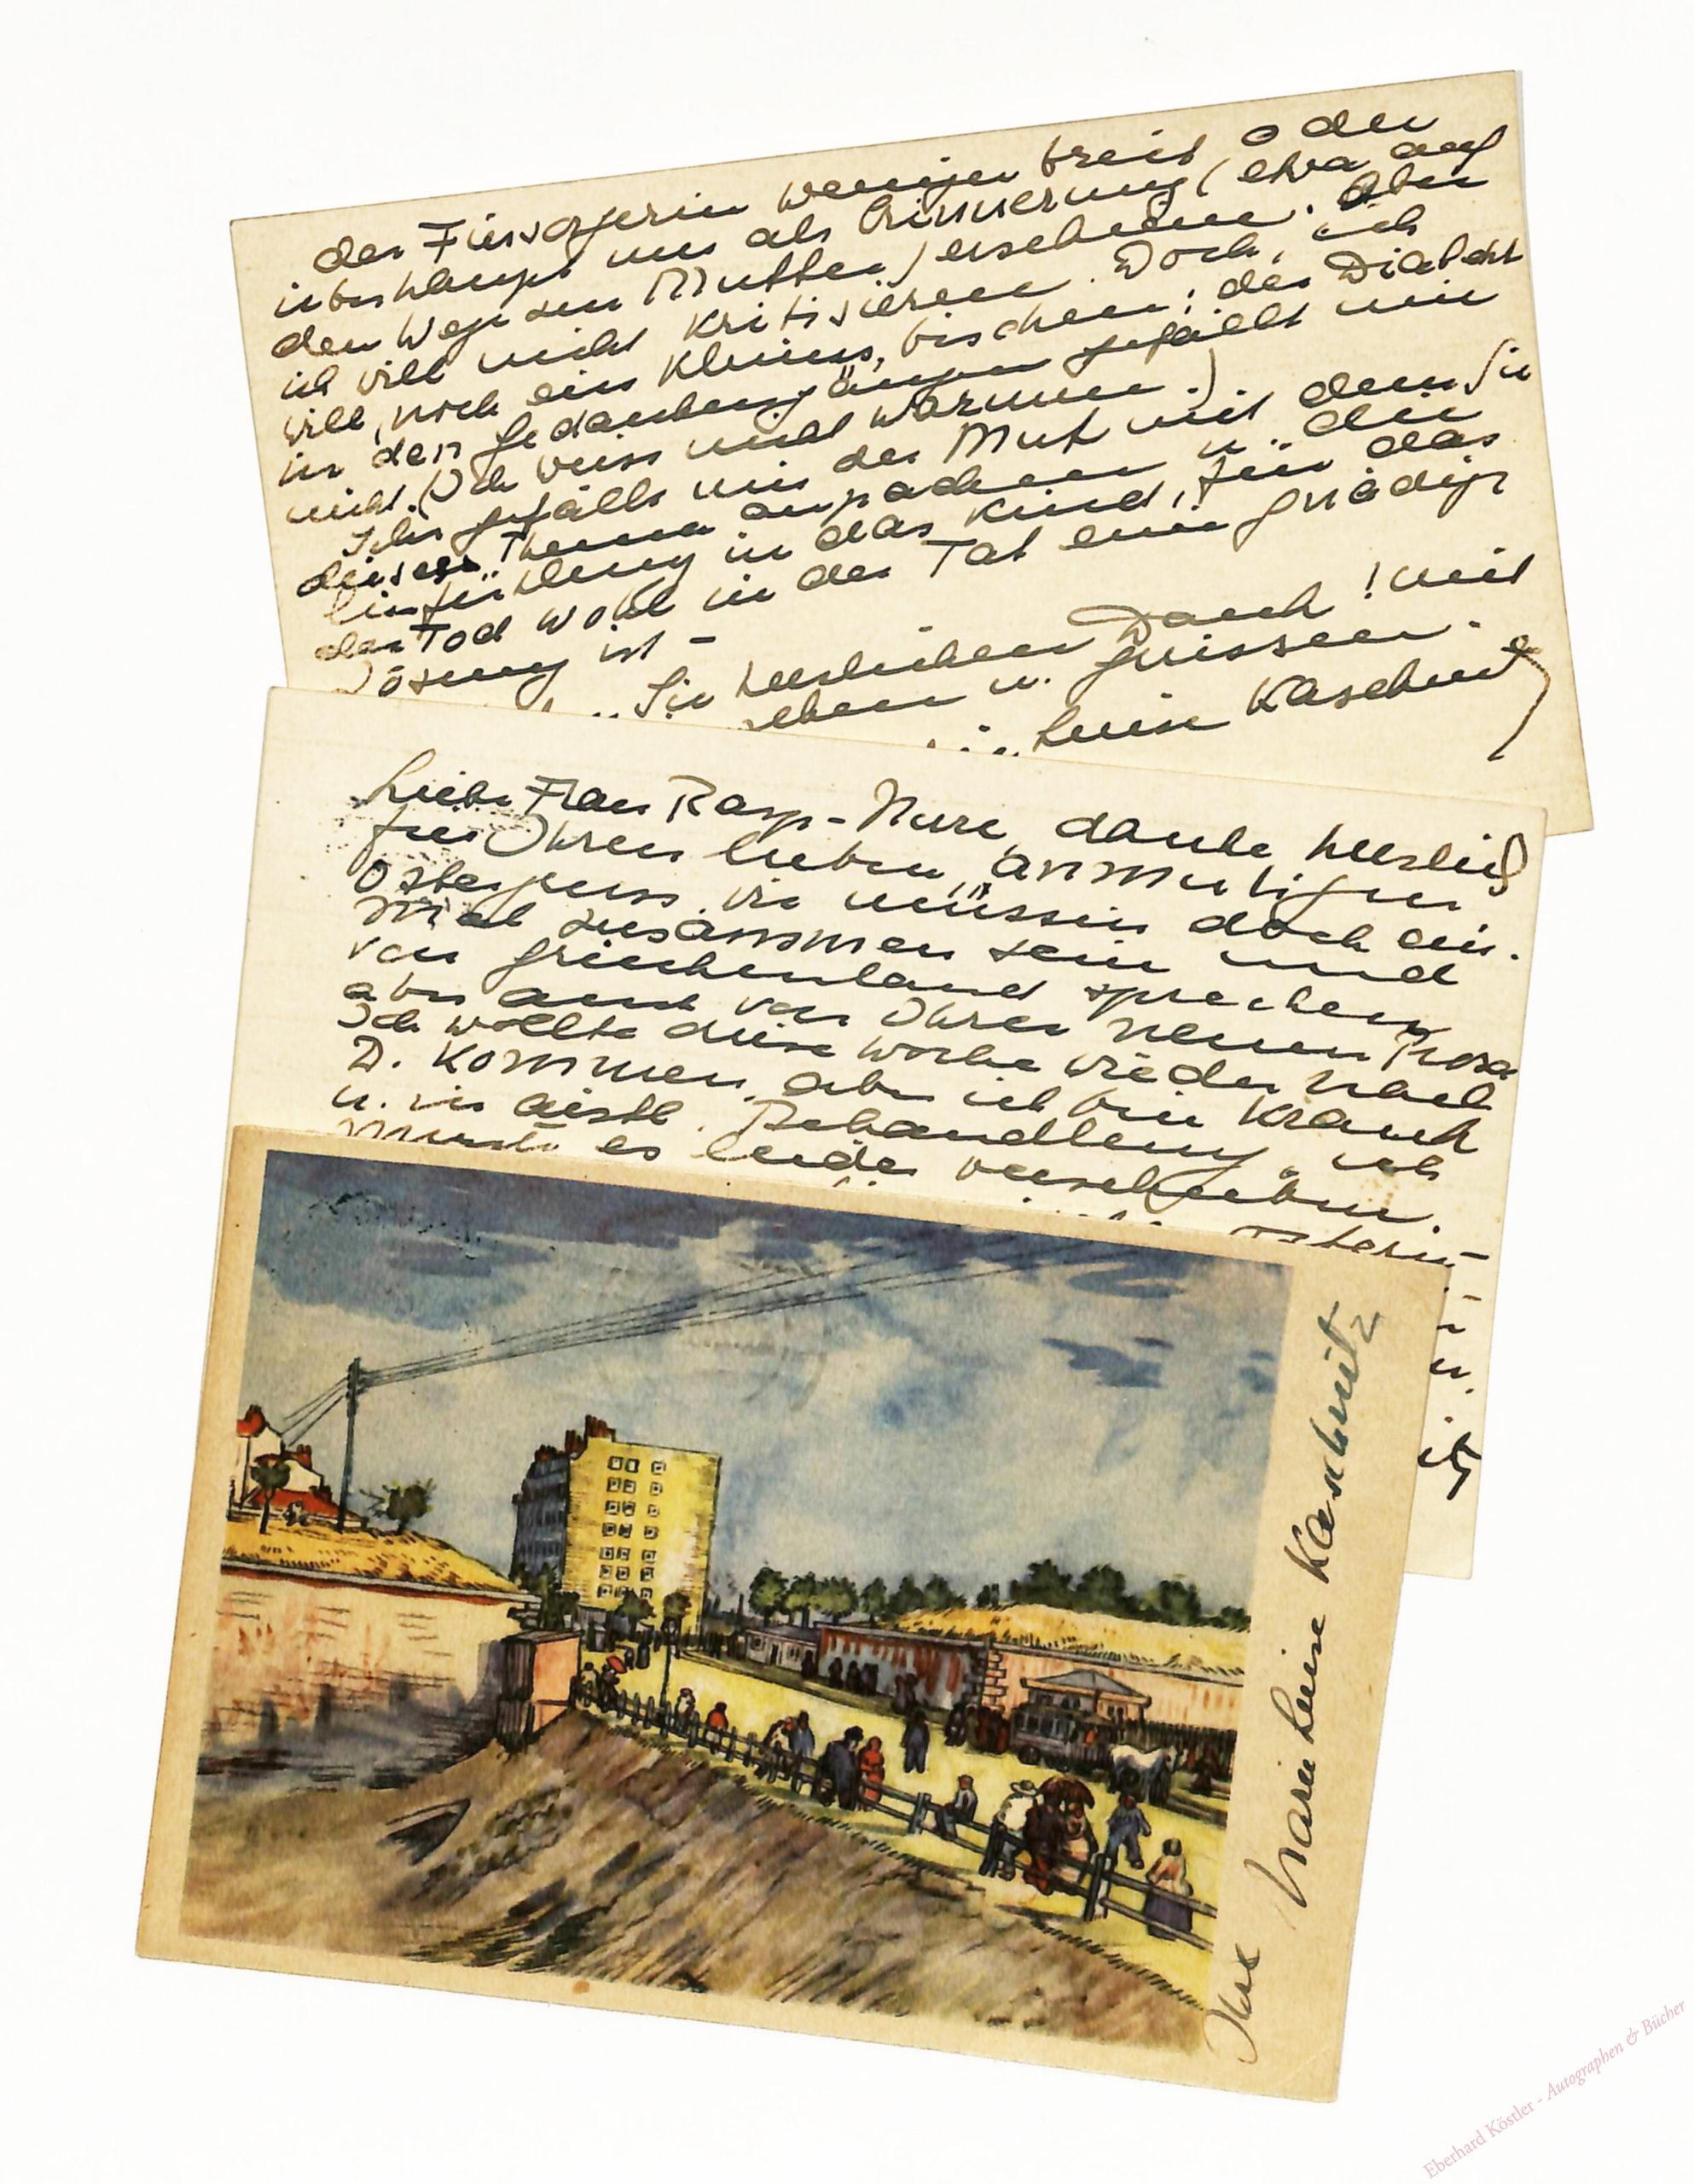 der Fürsorgerin weniger breit oder
überhaupt nur als Erinnerung (etwa auf
dem Wege zur Mutter) erscheinen. Aber
ich will nicht kritisieren. Doch, ich
will, noch ein kleines, bischen: der Dialekt
in den Gedankengängen gefällt mir
nicht. (Ich weiss nicht warum.).
Sehr gefällt mir der Mut mit dem Sie
dieses Thema anpacken u. die
Einfühlung in das Kind, für das
der Tod wohl in der Tat eine gnädige
Lösung ist –
Sie herzlichen Dank! mit
u. Grüssen.
Luise Kaschnitz
Liebe Frau Rasp-Nuri, danke herzlich
für Ihren lieben, anmutigen
Ostergruss. Wir müssen doch ein-
mal zusammen sein und
von Griechenland sprechen,
aber auch von Ihrer neuen Prosa
Ich wollte diese Woche wieder nach
D. kommen, aber ich bin krank
u. in ärztl. Behandlung, ich
musste es leider verschieben.
Ihre Marie Luise Kaschnitz
Eberhard Köstler - Autographen & Bücher